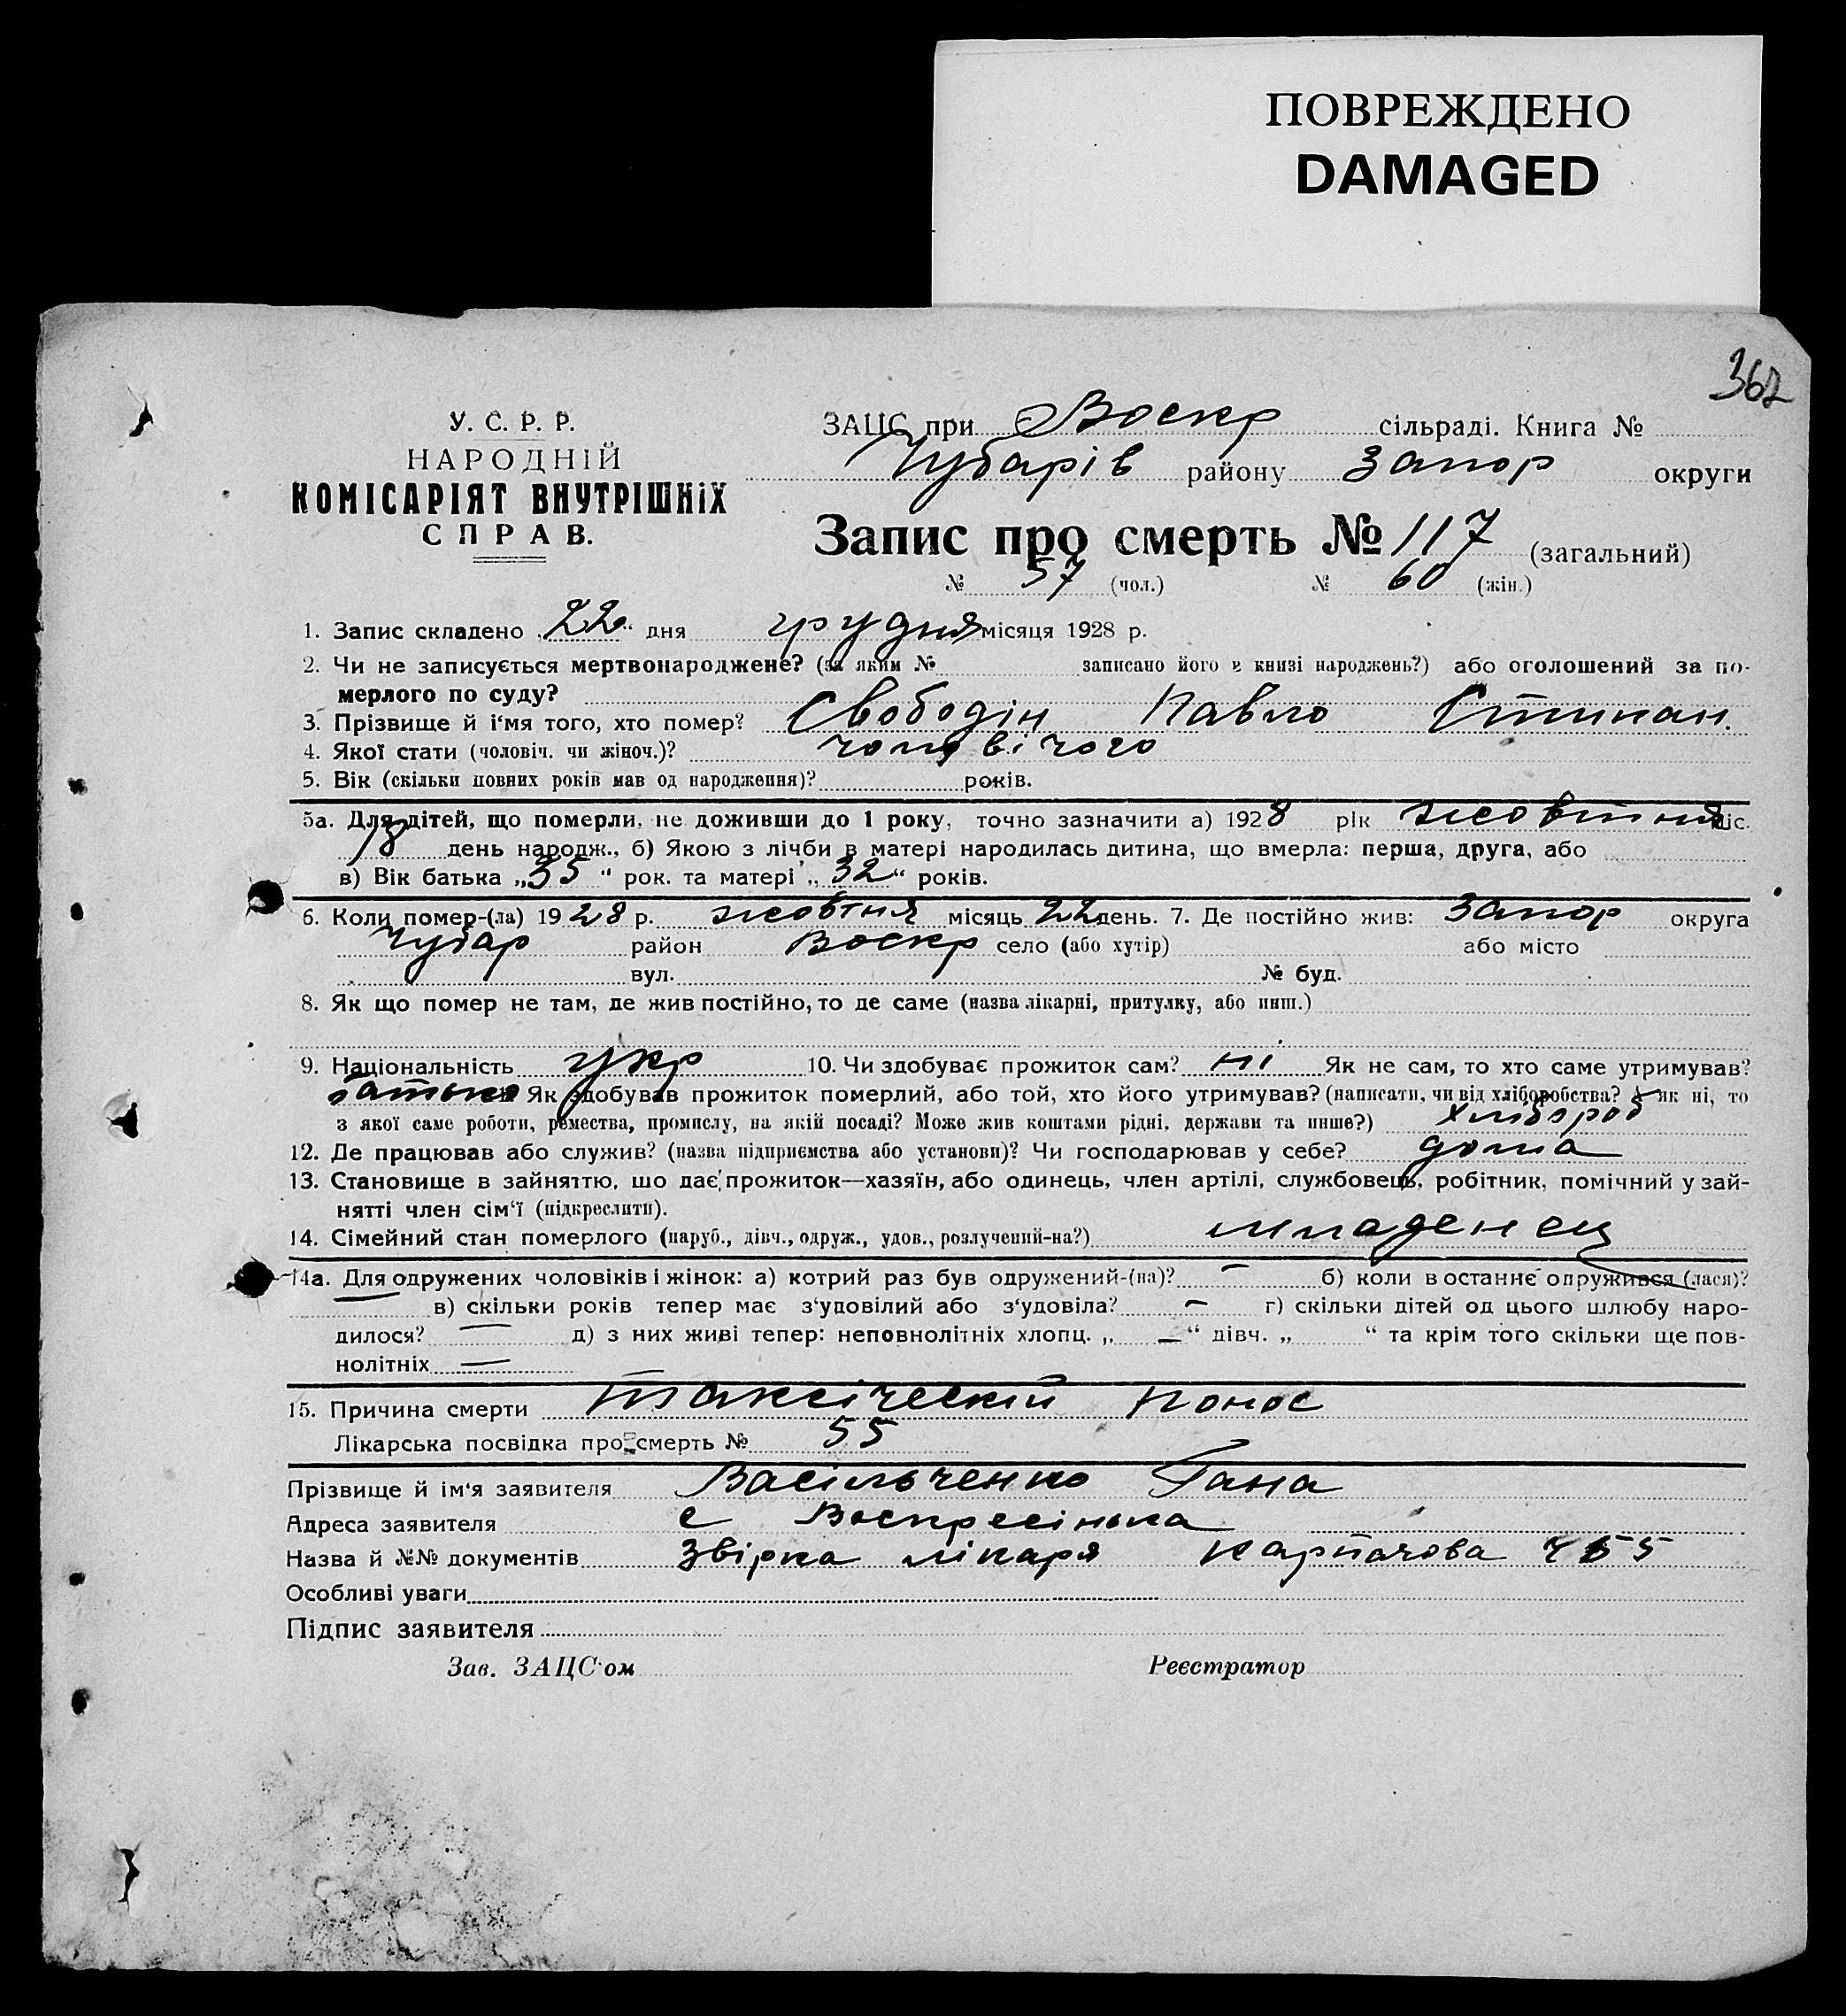 ПОВРЕЖДЕНО
DAMAGED
362
У. С. Р. Р.
НАРОДНІЙ
КОМІСАРІЯТ ВНУТРІШНІХ
СПРАВ.
ЗАЦС при Воскр сільраді. Книга №
Чубарів району Запор округи
Запис про смерть № 117 (загальний)
№ 57 (чол.) № 60 (жін.)
1. Запис складено „22“ дня грудня місяця 1928 р.
2. Чи не записується мертвонароджене? (за яким № записано його в книзі народжень?) або оголошений за по-
мерлого по суду?
3. Прізвище й і‘мя того, хто помер? Свободін Павло Стипан.
4. Якої стати (чоловіч. чи жіноч.)? чоловічого
5. Вік (скільки повних років мав од народження)? років.
5а. Для дітей, що померли, не доживши до 1 року, точно зазначити а) 1928 рік жовтня міс.
18 день народж., б) Якою з лічби в матері народилась дитина, що вмерла: перша, друга, або
в) Вік батька „35“ рок. та матері „32“ років.
6. Коли помер-(ла) 1928 р. жовтня місяць 22 день. 7. Де постійно жив: Запор округа
Чубар район Воскр село (або хутір) або місто
вул. № буд.
8. Як що помер не там, де жив постійно, то де саме (назва лікарні, притулку, або инш.)
9. Національність укр 10. Чи здобуває прожиток сам? ні Як не сам, то хто саме утримував?
батько Як здобував прожиток померлий, або той, хто його утримував? (написати, чи від хліборобства? А як ні, то
з якої саме роботи, ремества, промислу, на якій посаді? Може жив коштами рідні, держави та инше?) хлібороб
12. Де працював або служив? (назва підприємства або установи)? Чи господарював у себе? дома
13. Становище в зайняттю, що дає прожиток—хазяїн, або одинець, член артілі, службовець, робітник, помічний у зай-
нятті член сім‘ї (підкреслити).
14. Сімейний стан померлого (паруб., дівч., одруж., удов., розлучений-на?) младенец
14а. Для одружених чоловіків і жінок: а) котрий раз був одружений-(на)? — б) коли востаннє одружився (лася)?
— в) скільки років тепер має з‘удовілий або з‘удовіла? — г) скільки дітей од цього шлюбу наро-
дилося? — д) з них живі тепер: неповнолітніх хлопц. „—“ дівч. „ “ та крім того скільки ще пов-
нолітніх —
15. Причина смерти Таксіческій понос
Лікарська посвідка про смерть № 55
Прізвище й ім‘я заявителя Васільченко Гана
Адреса заявителя с Воскресінька
Назва й №№ документів Звірка лікаря
Особливі уваги
Підпис заявителя
Зав. ЗАЦС‘ом Реєстратор